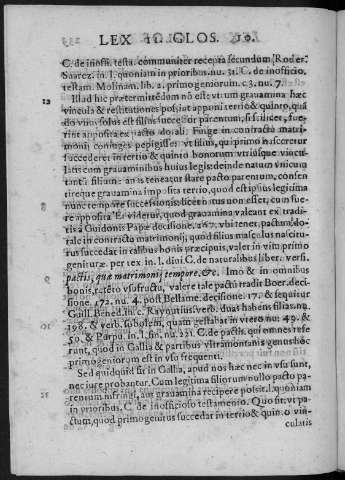 LEX 10. GLOS. 10.
C. de inoff. testa. communiter recepta secundum Roder.
Suarez. in l. quoniam in prioribus. nu. 31. C. de inofficio.
testam. Molinam. lib. 2. primogeniorum. c. 3. nu. 7.
12 Illud hic prætermittēdum nō est: vtrum grauamina hæc
vincula & restitutiones possint apponi tertio & quinto, quā
do vnus solus est filius successor parentum, si scilicet, fue-
rint apposita ex pacto do ali: Finge in contractu matri-
monij coniuges pepigisse: vt filius, qui primo nasceretur
succederet in tertio & quinto honorum vtriusque vincu-
latis cum grauaminibus huius legis: deinde natum vnicum
tantū filium: an is teneatur stare pacto parentum, consen-
tireque grauamina imposita tertio, quod est ipsius legitima
nunc tempore successionis: licet intus non esset, cum fue-
re apposita? Et videtur, quod grauamina valeant ex tradi-
tis a Guidonis Papæ decisione. 267. vbi tenet, pactum, do-
tale in contractu matrimonij, quod filius masculus nascitu-
rus succedat in talibus bonis præcipuis, valer in vim primo
genituræ. per tex. in l. diui C. de naturalibus liber. versi.
pactis, quæ matrimonij tempore, &c. Imò & in omnibus
bonis, reteto vsufructu, valere tale pactū tradit Boer. deci-
sione. 172. nu. 4. post Bellame. decisione. 17. & sequitur
Guill. Bened. in c. Raynutius. verb. duas habens filias. nu.
198. & verb. sobolem, quam gestabat in vtero nu. 49. &
50. & Purpu. in l. fin. nu. 231. C. de pactis. qui omnes refe
runt, quod in Gallia & partibus vltramontanis genus hoc
primogenitorum est in vsu frequenti.
Sed quidquid sit in Gallia, apud nos hæc nec in vsu sunt,
nec iure probantur. Cum legitima filiorum nullo pacto pa-
rentum infringi, aut grauamina recipere possit. l. quoniam
in prioribus. C. de inofficioso testamento. Quo fit: vt pa-
ctum, quod primogenitus succedat in tertio & quinto vin-
culatis